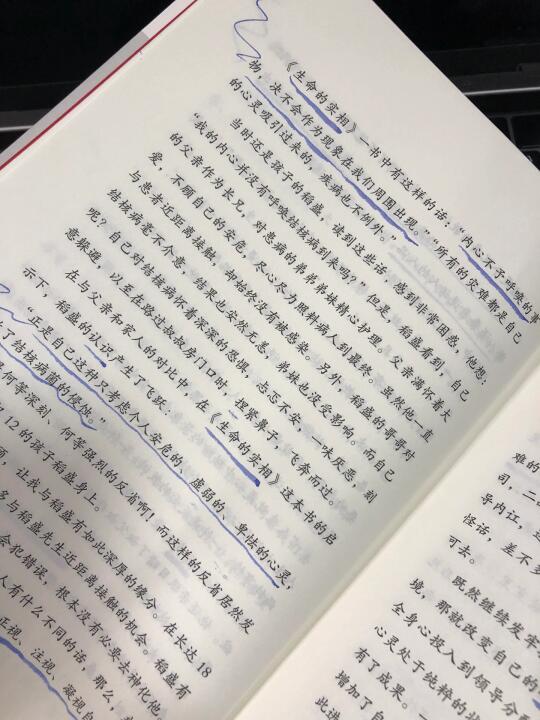 《生命的实相》一书中有这样的话:“内心不予呼唤的事
物,决不会作为现象在我们周围出现。”“所有的灾难都是自己
的心灵吸引过来的,疾病也不例外。”
当时还是孩子的稻盛,读到这些话,感到非常困惑,他想:
“我的内心并没有呼唤结核病到来吗?”但是,稻盛看到,自己
的父亲作为长兄,对患病的弟弟弟妹精心护理。父亲满怀着大
爱,不顾自己的安危,尽心尽力照料病人到最终。虽然他一直
与患者近距离接触,却始终没有被感染。另外,稻盛的哥哥对
结核病毫不介意,结果也安然无恙,弟妹也没受影响。而自己
呢?自己对结核病怀着深深的恐惧,忐忑不安,一味厌恶,刻
意躲避,以至在路过叔叔房门口时,捏紧鼻子,飞奔而过。
在与父亲和家人的对比中,在《生命的实相》这本书的启
示下,稻盛的认识产生了飞跃:
“正是自己这种只考虑个人安危的、虚弱的、卑怯的心灵,
了结核病菌的侵蚀。”
何等深刻、何等强烈的反省啊!而这样的反省居然发
12 的孩子稻盛身上。
让我与稻盛有如此深厚的缘分,在长达 18
多与稻盛先生近距离接触的机会。稻盛有
会犯错误,根本没有必要去神化他
人有什么不同的话,那么,
正视、注视、凝视自
难的
司,二
导内讧,
怪话,差不多
可去。
既然继续发牢
境,那就改变自己的
全身心投入到领导分
心灵处于纯粹的
有了成果。
增加了自
此进